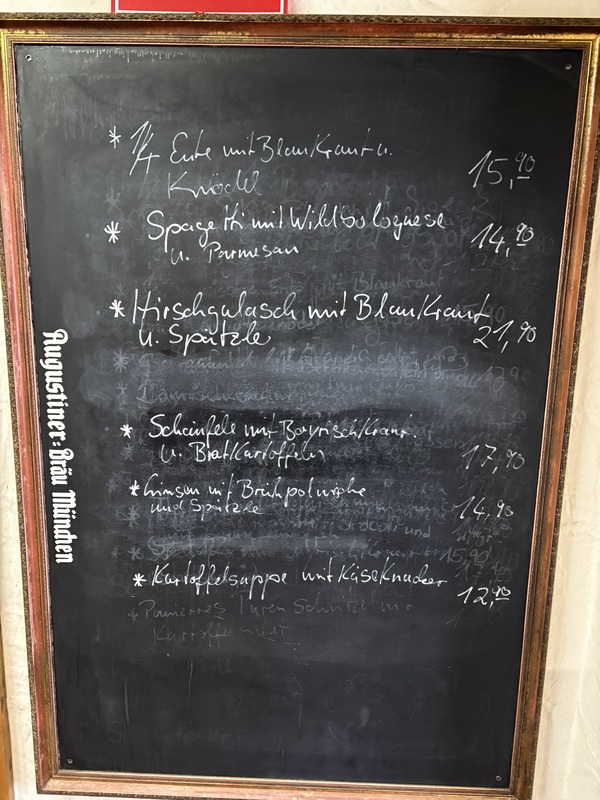 * 1/4 Ente mit Blaukraut u.
Knödel 15,90
* Spagetti mit Wildbolognese
u. Parmesan 14,90
* Hirschgulasch mit Blaukraut
u. Spätzle 21,90
* Schäufele mit Bayrischkraut
u. Bratkartoffeln 17,90
* Linsen mit
und Spätzle 14,90
* Kartoffelsuppe mit Käseknacker
12,90
Augustiner-Bräu München